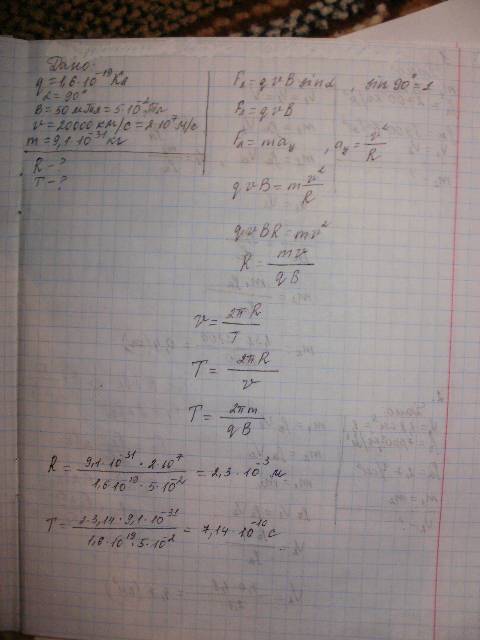 Дано:
q = 1,6·10⁻¹⁹ Кл
α = 90°
B = 50 мТл = 5·10⁻² Тл
v = 20000 км/с = 2·10⁷ м/с
m = 9,1·10⁻³¹ кг
R - ?
T - ?
Fл = qvB sinα, sin 90° = 1
Fл = qvB
Fл = maц, aц = v²/R
qvB = m v²/R
qvBR = mv²
R = mv/qB
v = 2πR/T
T = 2πR/v
T = 2πm/qB
R = 9,1·10⁻³¹ · 2·10⁷ / 1,6·10¹⁹ · 5·10⁻² = 2,3·10⁻³ м
T = 2·3,14·9,1·10⁻³¹ / 1,6·10¹⁹·5·10⁻² = 7,14·10⁻¹⁰ с